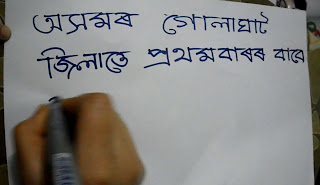 অসমৰ গোলাঘাট
জিলাতে প্ৰথমবাৰৰ বাবে